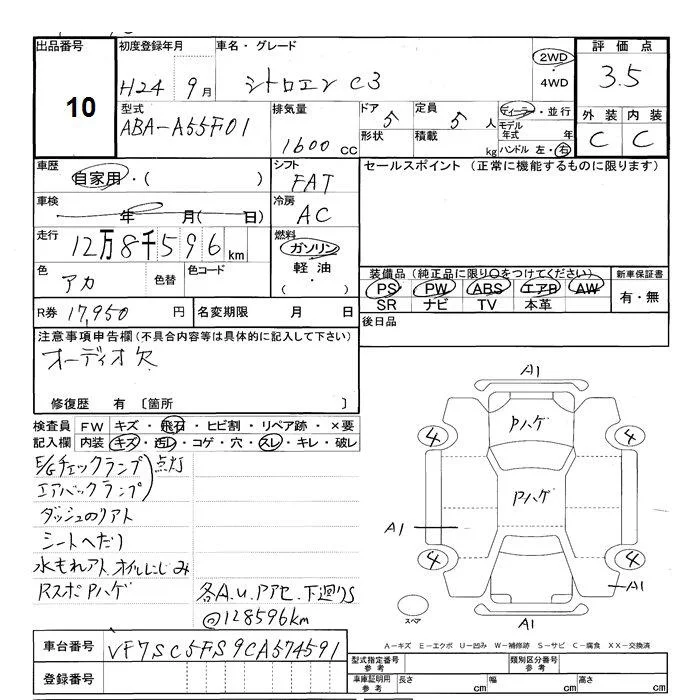 出品番号 初度登録年月 車名・グレード 評価点
10 H24年 9月 シトロエン C3 2WD・4WD 3.5
型式 排気量 ドア 定員 ディーラー・並行 外装 内装
ABA-A55F01 1600 CC 5 5人 モデル年式 年 C C
形状 積載 kg ハンドル 左・右
車歴 自家用・( ) シフト FAT セールスポイント (正常に機能するものに限ります)
車検 年 月( 日) 冷房 AC
走行 12万8千596km 燃料 ガソリン
軽油
・( )
色 アカ 色替 色コード
装備品 (純正品に限り○をつけてください) 新車保証書
PS PW ABS エアB AW 有・無
SR ナビ TV 本革
R券 17,950 円 名変期限 月 日
後日品
注意事項申告欄 (不具合内容等は具体的に記入して下さい)
オーディオ欠
修復歴 有 〔箇所 〕
検査員 FW キズ・飛石・ヒビ割・リペア跡・×要
記入欄 内装 キズ・汚レ・コゲ・穴・スレ・キレ・破レ
E/Gチェックランプ) 点灯
エアバックランプ)
ダッシュのリアト
シートへたり
水もれアト.オイルにじみ
RスポPハゲ 各A.U.アアセ.下廻りS
@128596km
A1
Pハゲ
4 4
Pハゲ
A1
4 4
A1
スペア A1
車台番号 VF7SC5FS9CA574591
A-キズ E-エクボ U-凹み W-補修跡 S-サビ C-腐食 XX-交換済
登録番号
型式指定番号 参考 類別区分番号 参考
車庫証明用 参考 長さ cm 幅 cm 高さ cm